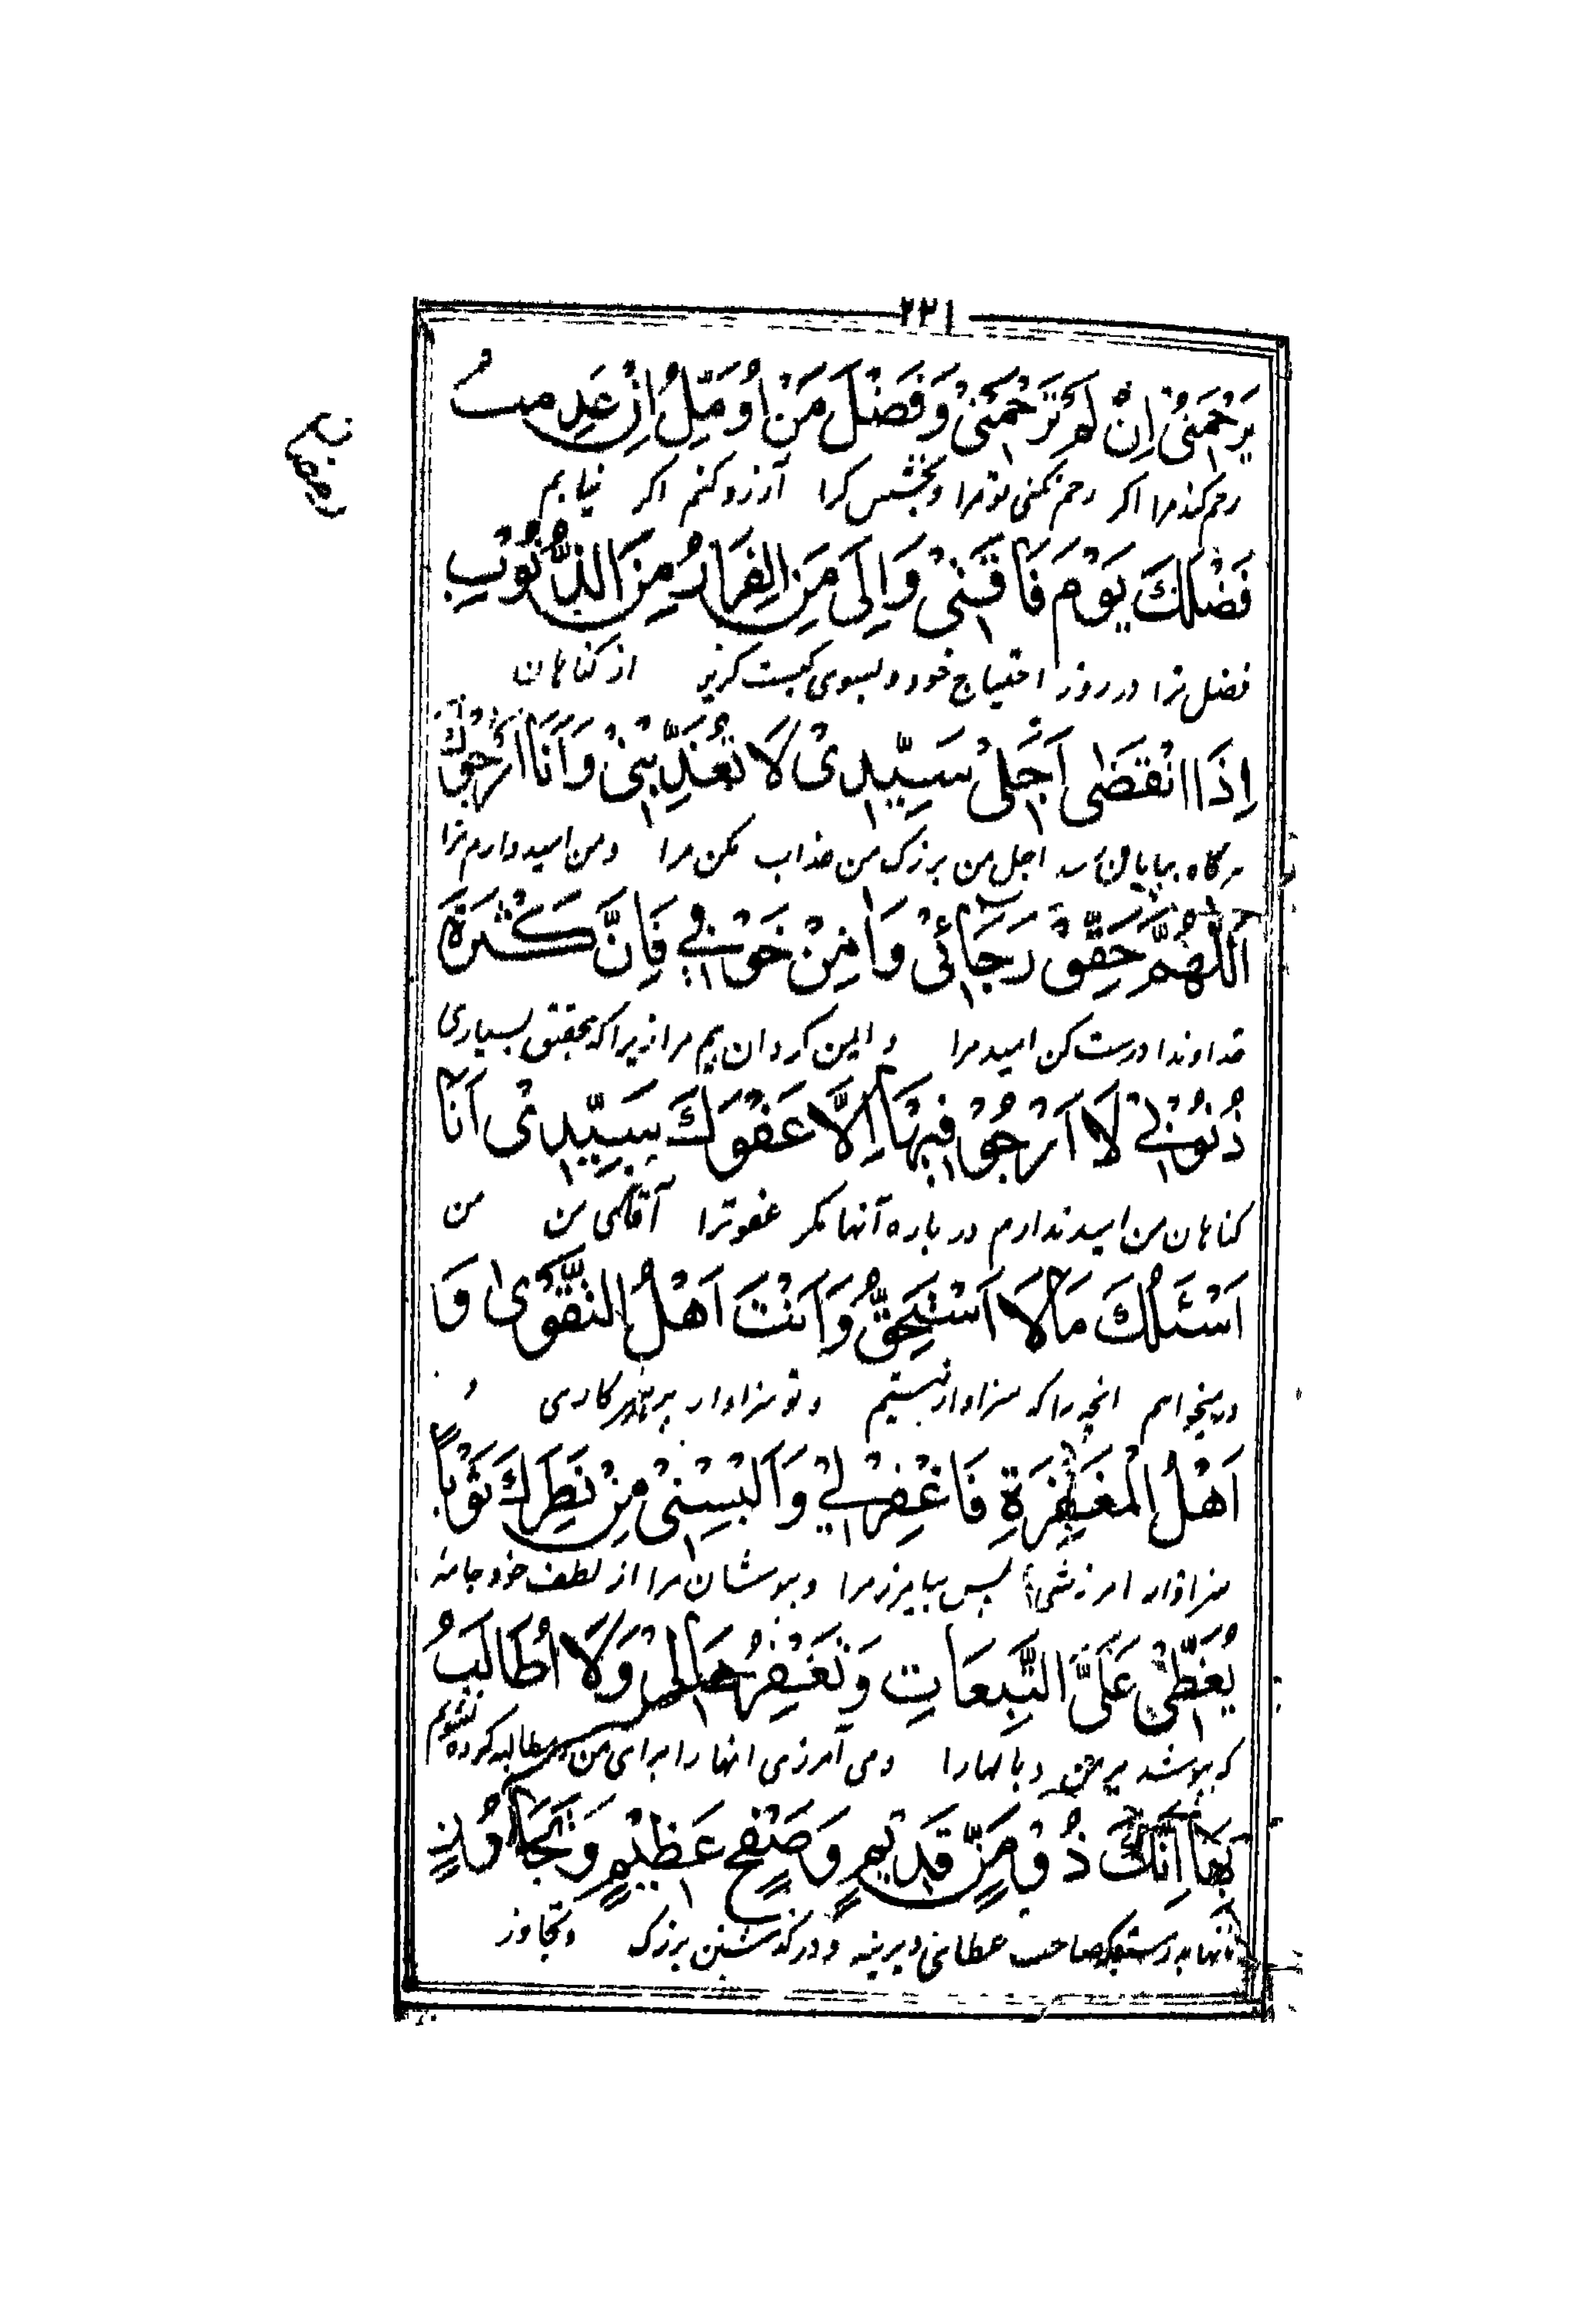 ۲۲۱
يَرْحَمُنِىْ اِنْ لَمْ تَرْحَمْنِىْ وَفَضْلَ مَنْ اُوَمِّلُ اِنْ عَدِمْتُ
رحم کند مرا اگر رحم نکنی تو مرا و بخشش کرا آرزو کنم اگر نیابم
فَضْلَكَ يَوْمَ فَاقَتِىْ وَاِلىٰ مَنِ الْفِرَارُ مِنَ الذُّنُوْبِ
فضل ترا در روز احتیاج خود و بسوی کیست گریز از گناهان
اِذَا انْقَضٰى اَجَلِىْ سَيِّدِىْ لَا تُعَذِّبْنِىْ وَاَنَا اَرْجُوْكَ
هرگاه بپایان رسد اجل من بزرگ من عذاب مکن مرا و من امید دارم ترا
اَللّٰهُمَّ حَقِّقْ رَجَائِىْ وَاٰمِنْ خَوْفِىْ فَاِنَّ كَثْرَةَ
خداوندا درست کن امید مرا و ایمن گردان بیم مرا زیرا که بتحقیق بسیاری
ذُنُوْبِىْ لَا اَرْجُوْ فِيْهَا اِلَّا عَفْوَكَ سَيِّدِىْ اَنَا
گناهان من امید ندارم در باره آنها مگر عفو ترا آقای من من
اَسْئَلُكَ مَا لَا اَسْتَحِقُّ وَاَنْتَ اَهْلُ التَّقْوٰى وَ
میخواهم انچه را که سزاوار نیستیم و تو سزاوار پرهیزکاری و
اَهْلُ الْمَغْفِرَةِ فَاغْفِرْ لِىْ وَاَلْبِسْنِىْ مِنْ نَظَرِكَ ثَوْبًا
سزاوار امرزشی پس بیامرز مرا و بپوشان مرا از لطف خود جامه
يُغَطِّىْ عَلَىَّ التَّبِعَاتِ وَتَغْفِرُهَا لِىْ وَلَا اُطَالَبُ
که بپوشد بر من وبالها را و می آمرزی انها را برای من و مطالبه کرده نشوم
بِهَا اِنَّكَ ذُوْ مَنٍّ قَدِيْمٍ وَصَفْحٍ عَظِيْمٍ وَتَجَاوُزٍ
بانها بدرستیکه صاحب عطای دیرینه و درگذشتن بزرگ و تجاوز